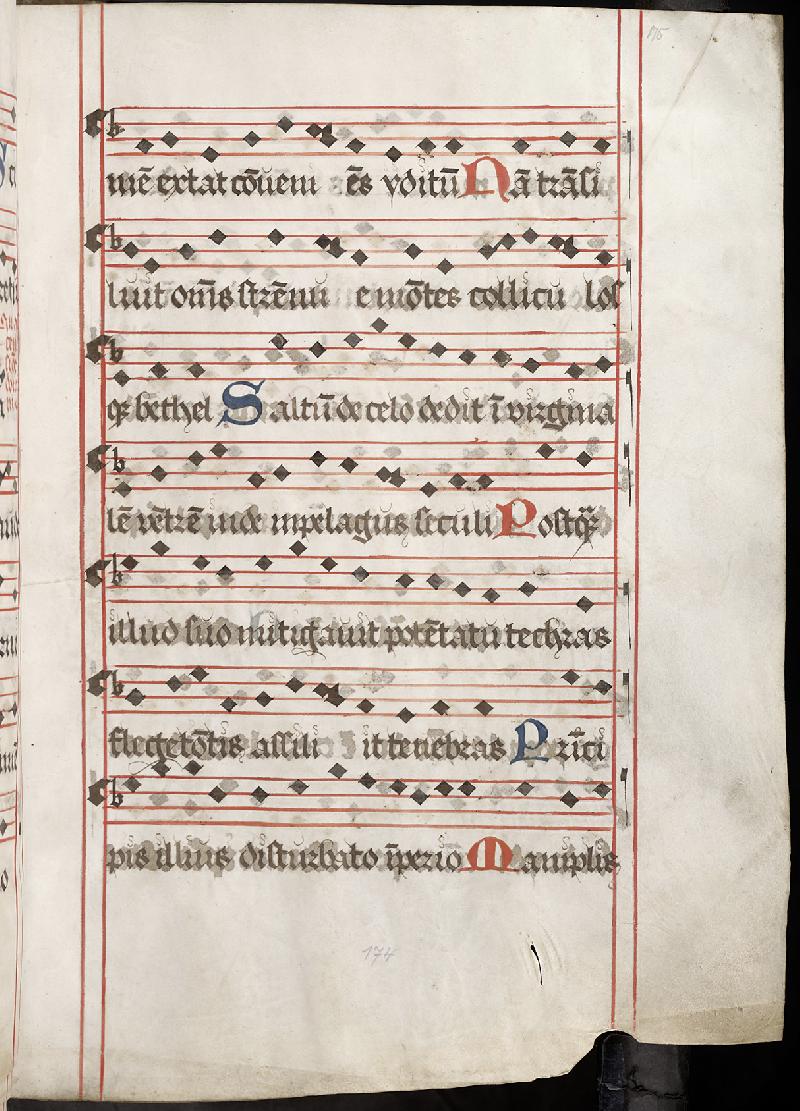 175
mē extat cōueni ēs vditū Nā trāsi
liuit om̄s strēnu e mōtes collicu los
qꝫ bethel Saltū de celo dedit ī virgina
lē vētrē inde in pelagus seculi Postq̄ꝫ
illud suo mitigauit potētatu techras
flegetōtis assili it tenebras Prīci
pis illius disturbato īperio Maniplis
174